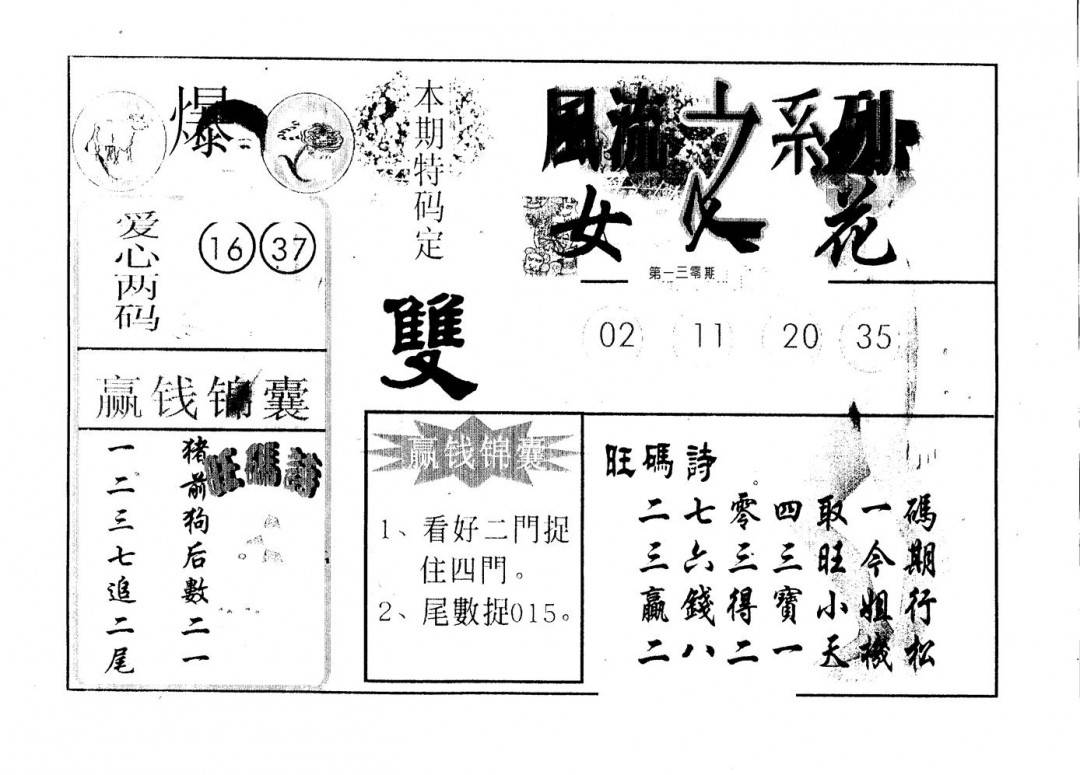 爆
本期特码定
雙
风流之系列
女人花
第一三零期
爱心两码
16 37
02 11 20 35
赢钱锦囊
旺碼詩
猪前狗后數二一
一二三七追二尾
赢钱锦囊
1、看好二門捉
住四門。
2、尾數捉015。
旺碼詩
二七零四取一碼
三六三三旺今期
贏錢得寶小姐行
二八二一天機松